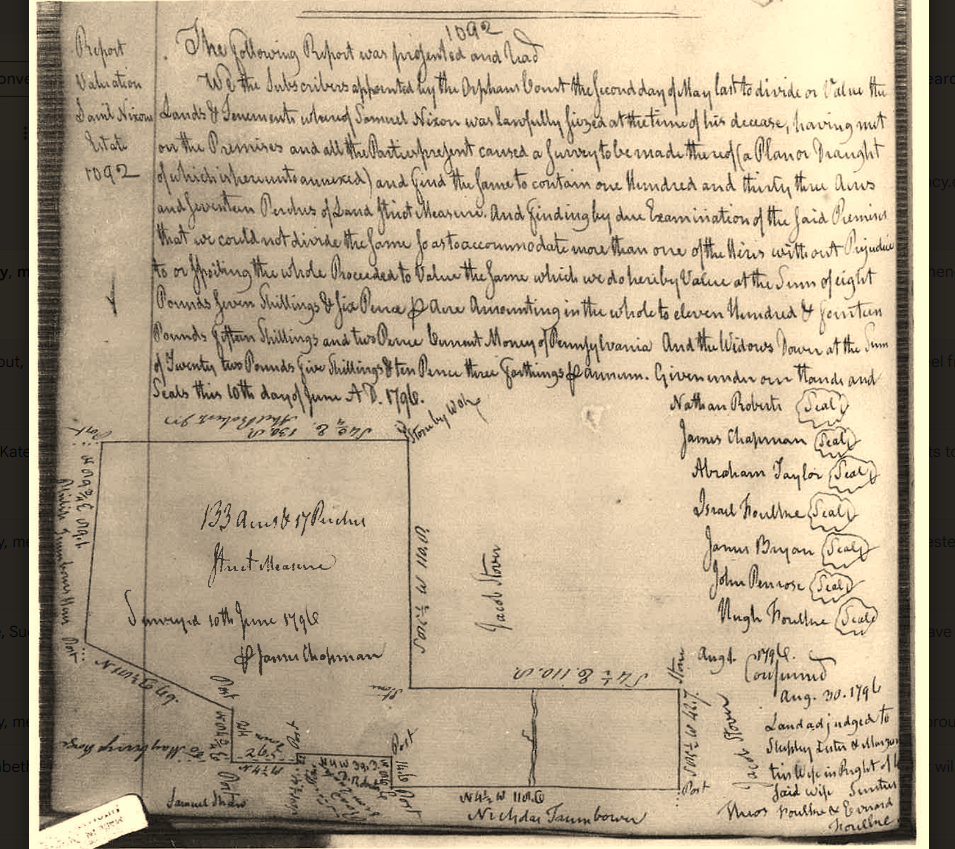 1092
Report
Valuation
Saml Nixons
Estate
1092
The following Report was presented and read
We the Subscribers appointed by the Orphans Court the Second day of May last to divide or Value the
Lands & Tenements whereof Samuel Nixon was lawfully seized at the time of his decease, having met
on the Premises and all the Parties present caused a Survey to be made thereof (a Plan or Draught
of which is hereunto annexed) and find the same to contain one Hundred and thirty three Acres
and Seventeen Perches of Land Strict Measure. And finding by due Examination of the said Premises
that we could not divide the same so as to accommodate more than one of the Heirs without Prejudice
to or Spoiling the whole Proceeded to Value the same which we do hereby Value at the Sum of eight
Pounds Seven Shillings & Six Pence p Acre Amounting in the whole to eleven Hundred & fourteen
Pounds fifteen Shillings and two Pence Current Money of Pennsylvania And the Widows Dower at the Sum
of Twenty two Pounds five Shillings & ten Pence three farthings p annum. Given under our Hands and
Seals this 10th day of June A.D. 1796.
Nathan Roberts Seal
James Chapman Seal
Abraham Taylor Seal
Israel Foulke Seal
James Bryan Seal
John Penrose Seal
Hugh Foulke Seal
Post
133 Acres & 17 Perches
Strict Measure
Surveyd 10th June 1796
p James Chapman
Jacob Stover
S 4½ E 110
Stone
Stone
Post
Post
Post
Post
Post
Samuel Shaw
N 4½ W 110
Nicholas Taumbower
Jacob Stover
Augt. 1796.
Confirmed
Aug. 30. 1796
Land adjudged to
Stephen Lester &
his Wife in Right of
said wife Sureties
Theos Foulke & Everard
Foulke